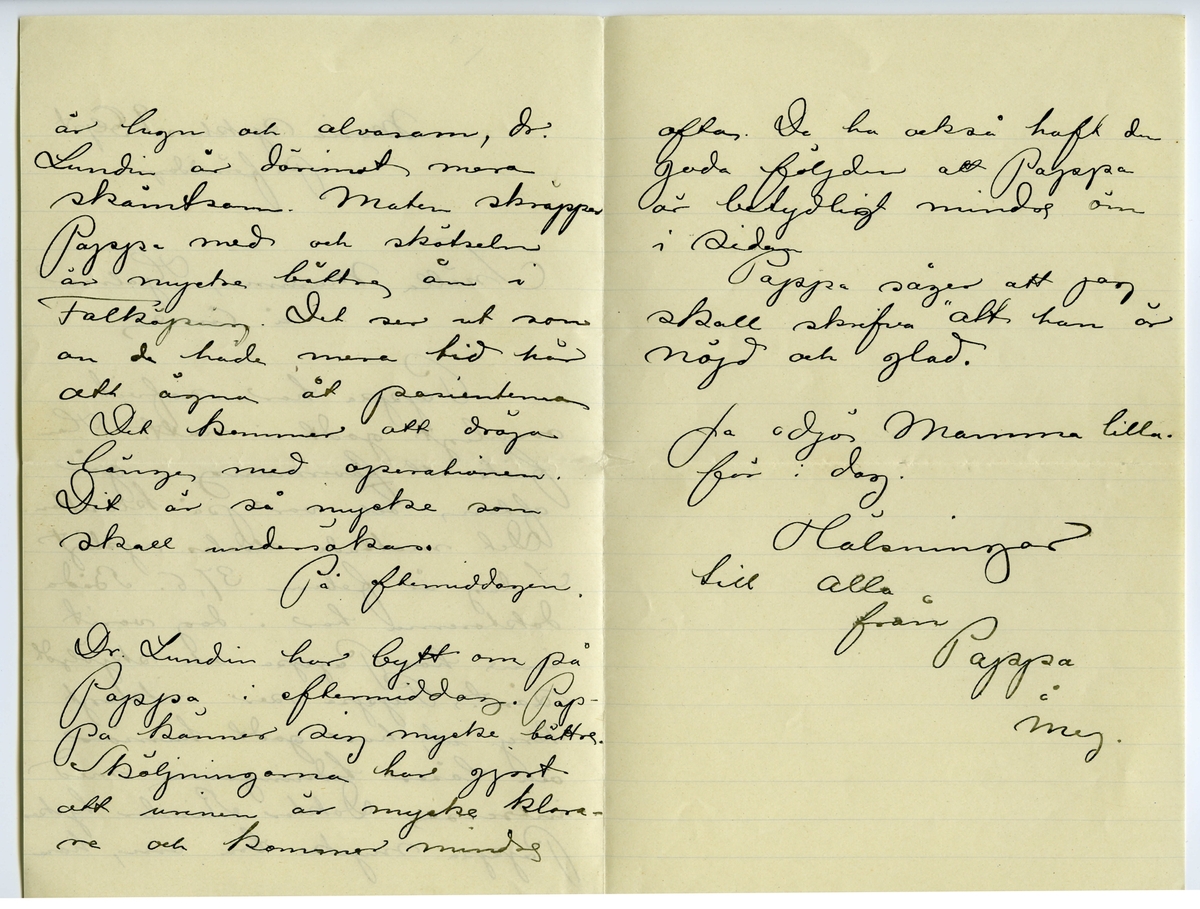 är lugn och alvarsam, dr.
Lundin är däremot mera
skämtsam. Maten skrappar
Pappa med och skötseln
är mycke bättre än i
Falköping. Det ser ut som
om de hade mera tid här
att ägna åt pasienterna
Det kommer att dröja
länge med operationen.
Det är så mycke som
skall undersökas.
På eftermiddagen.
Dr. Lundin har bytt om på
Pappa i eftermiddag. Pap-
pa känner sig mycke bättre.
Sköljningarna har gjort
att urinen är mycke klara-
re och kommer mindre
oftas. De ha också haft den
goda följden att Pappa
är betydligt mindre öm
i sidan
Pappa säger att jag
skall skrifva att han är
nöjd och glad.
Ja adjö, Mamma lilla.
för i dag.
Hälsningar
till alla
från
Pappa
å
mej.